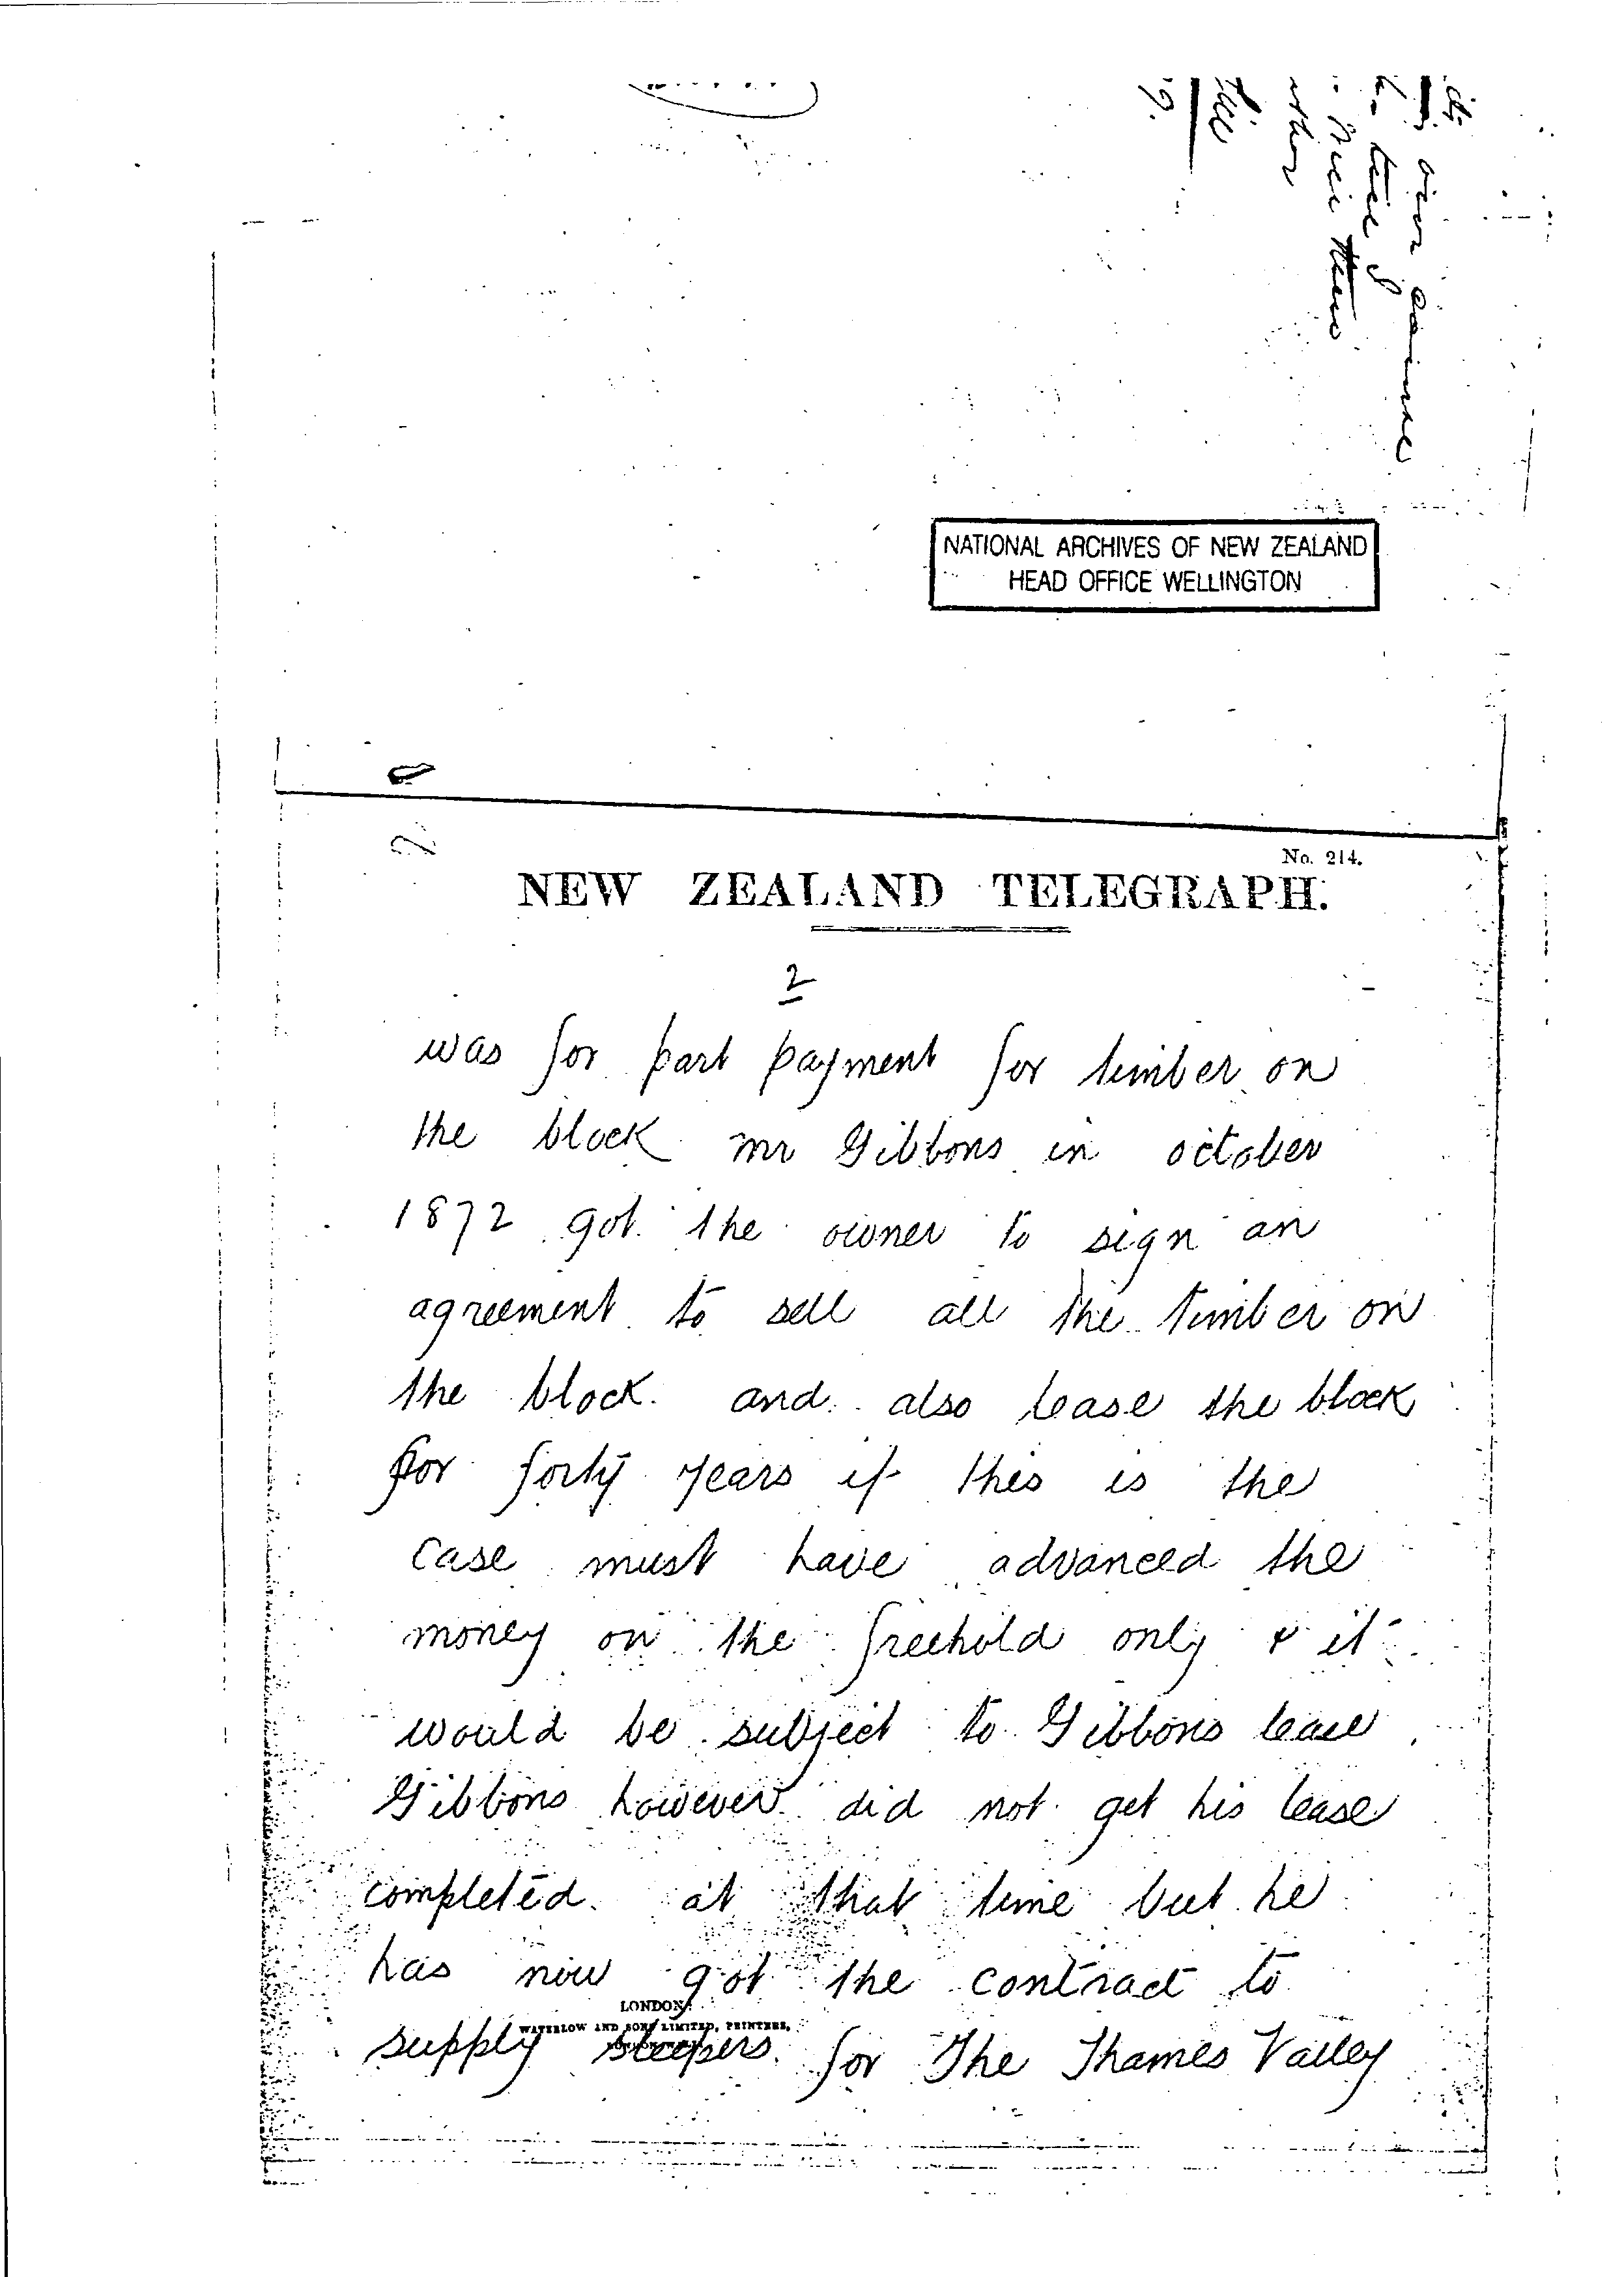 NATIONAL ARCHIVES OF NEW ZEALAND
HEAD OFFICE WELLINGTON
No. 214.
NEW ZEALAND TELEGRAPH.
2
was for part payment for timber on
the block mr Gibbons in october
1872 got the owner to sign an
agreement to sell all the timber on
the block. and also lease the block
for forty years if this is the
case must have advanced the
money on the freehold only & it
would be subject to Gibbons lease
Gibbons however did not get his lease
completed. at that time but he
has now got the contract to
LONDON:
WATERLOW AND SONS LIMITED, PRINTERS,
supply sleepers. for The Thames Valley